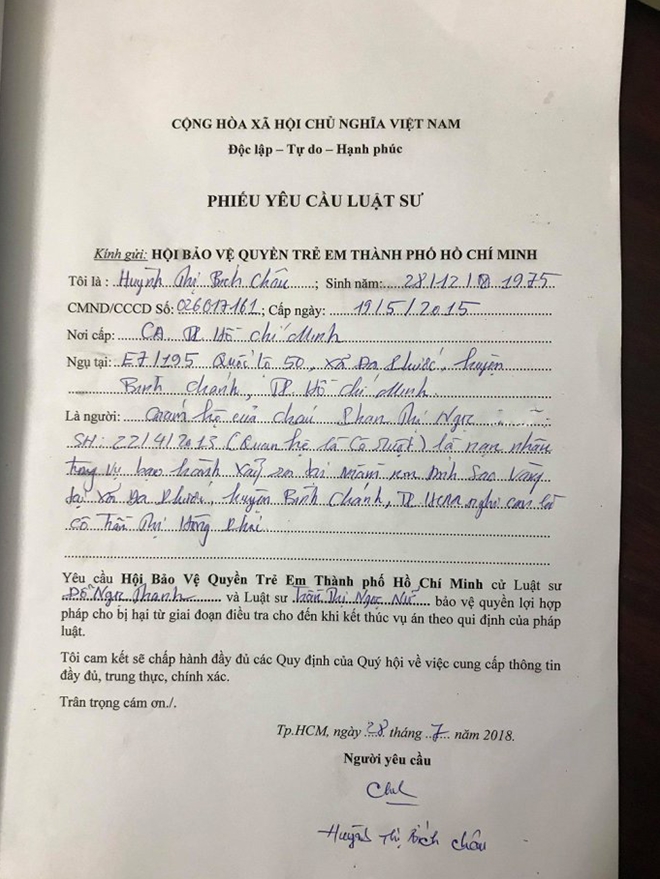 CỘNG HÒA XÃ HỘI CHỦ NGHĨA VIỆT NAM
Độc lập – Tự do – Hạnh phúc
PHIẾU YÊU CẦU LUẬT SƯ
Kính gửi: HỘI BẢO VỆ QUYỀN TRẺ EM THÀNH PHỐ HỒ CHÍ MINH
Tôi là : Huỳnh Thị Bích Châu; Sinh năm: 28/12/ 1975
CMND/CCCD Số: 026017161; Cấp ngày: 19/5/2015
Nơi cấp: CA TP Hồ Chí Minh
Ngụ tại: E7/195 Quốc lộ 50, xã Đa Phước, huyện
Bình Chánh, TP Hồ Chí Minh.
Là người: giám hộ của cháu Phan Thị Ngọc
SN: 22/4/2013 (Quan hệ là Cô ruột) là nạn nhân
trong vụ bạo hành xảy ra tại mầm non Ánh Sao Vàng
tại xã Đa Phước, huyện Bình Chánh, TP HCM nghi can là
cô Trần Thị Hồng
Yêu cầu Hội Bảo Vệ Quyền Trẻ Em Thành phố Hồ Chí Minh cử Luật sư
Đỗ Ngọc Thanh và Luật sư Trần Thị Ngọc Nữ bảo vệ quyền lợi hợp
pháp cho bị hại từ giai đoạn điều tra cho đến khi kết thúc vụ án theo qui định của pháp
luật.
Tôi cam kết sẽ chấp hành đầy đủ các Quy định của Quý hội về việc cung cấp thông tin
đầy đủ, trung thực, chính xác.
Trân trọng cám ơn./.
Tp.HCM, ngày 28 tháng 7 năm 2018.
Người yêu cầu
Huỳnh Thị Bích Châu